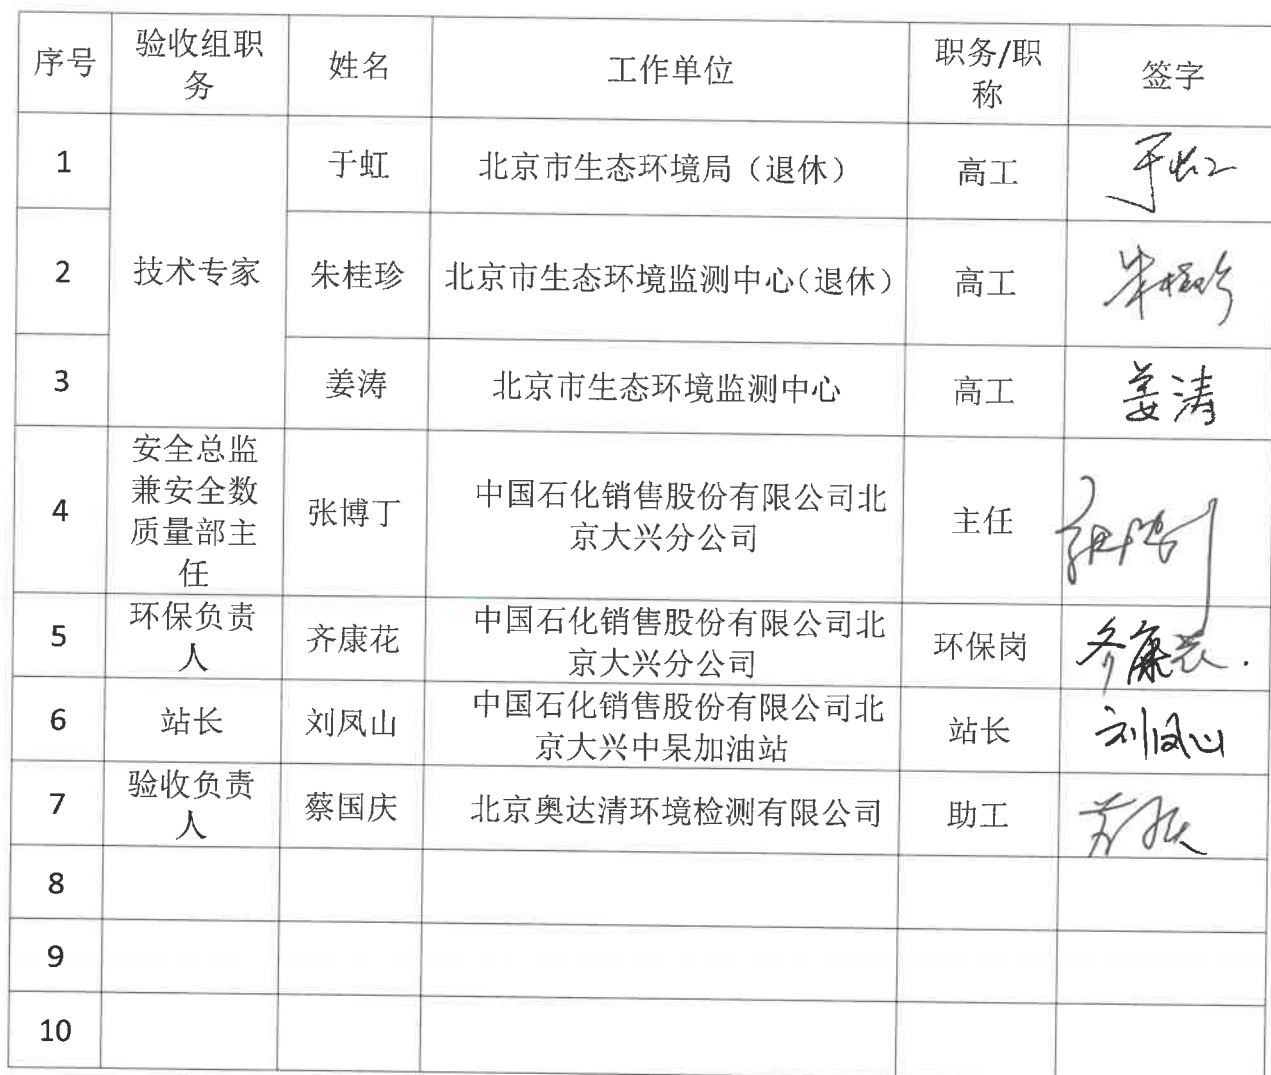 序号 验收组职务 姓名 工作单位 职务/职称 签字
1 技术专家 于虹 北京市生态环境局（退休） 高工 于虹
2 朱桂珍 北京市生态环境监测中心（退休） 高工 朱桂珍
3 姜涛 北京市生态环境监测中心 高工 姜涛
4 安全总监兼安全数质量部主任 张博丁 中国石化销售股份有限公司北京大兴分公司 主任 张博丁
5 环保负责人 齐康花 中国石化销售股份有限公司北京大兴分公司 环保岗 齐康花
6 站长 刘凤山 中国石化销售股份有限公司北京大兴中杲加油站 站长 刘凤山
7 验收负责人 蔡国庆 北京奥达清环境检测有限公司 助工
8
9
10